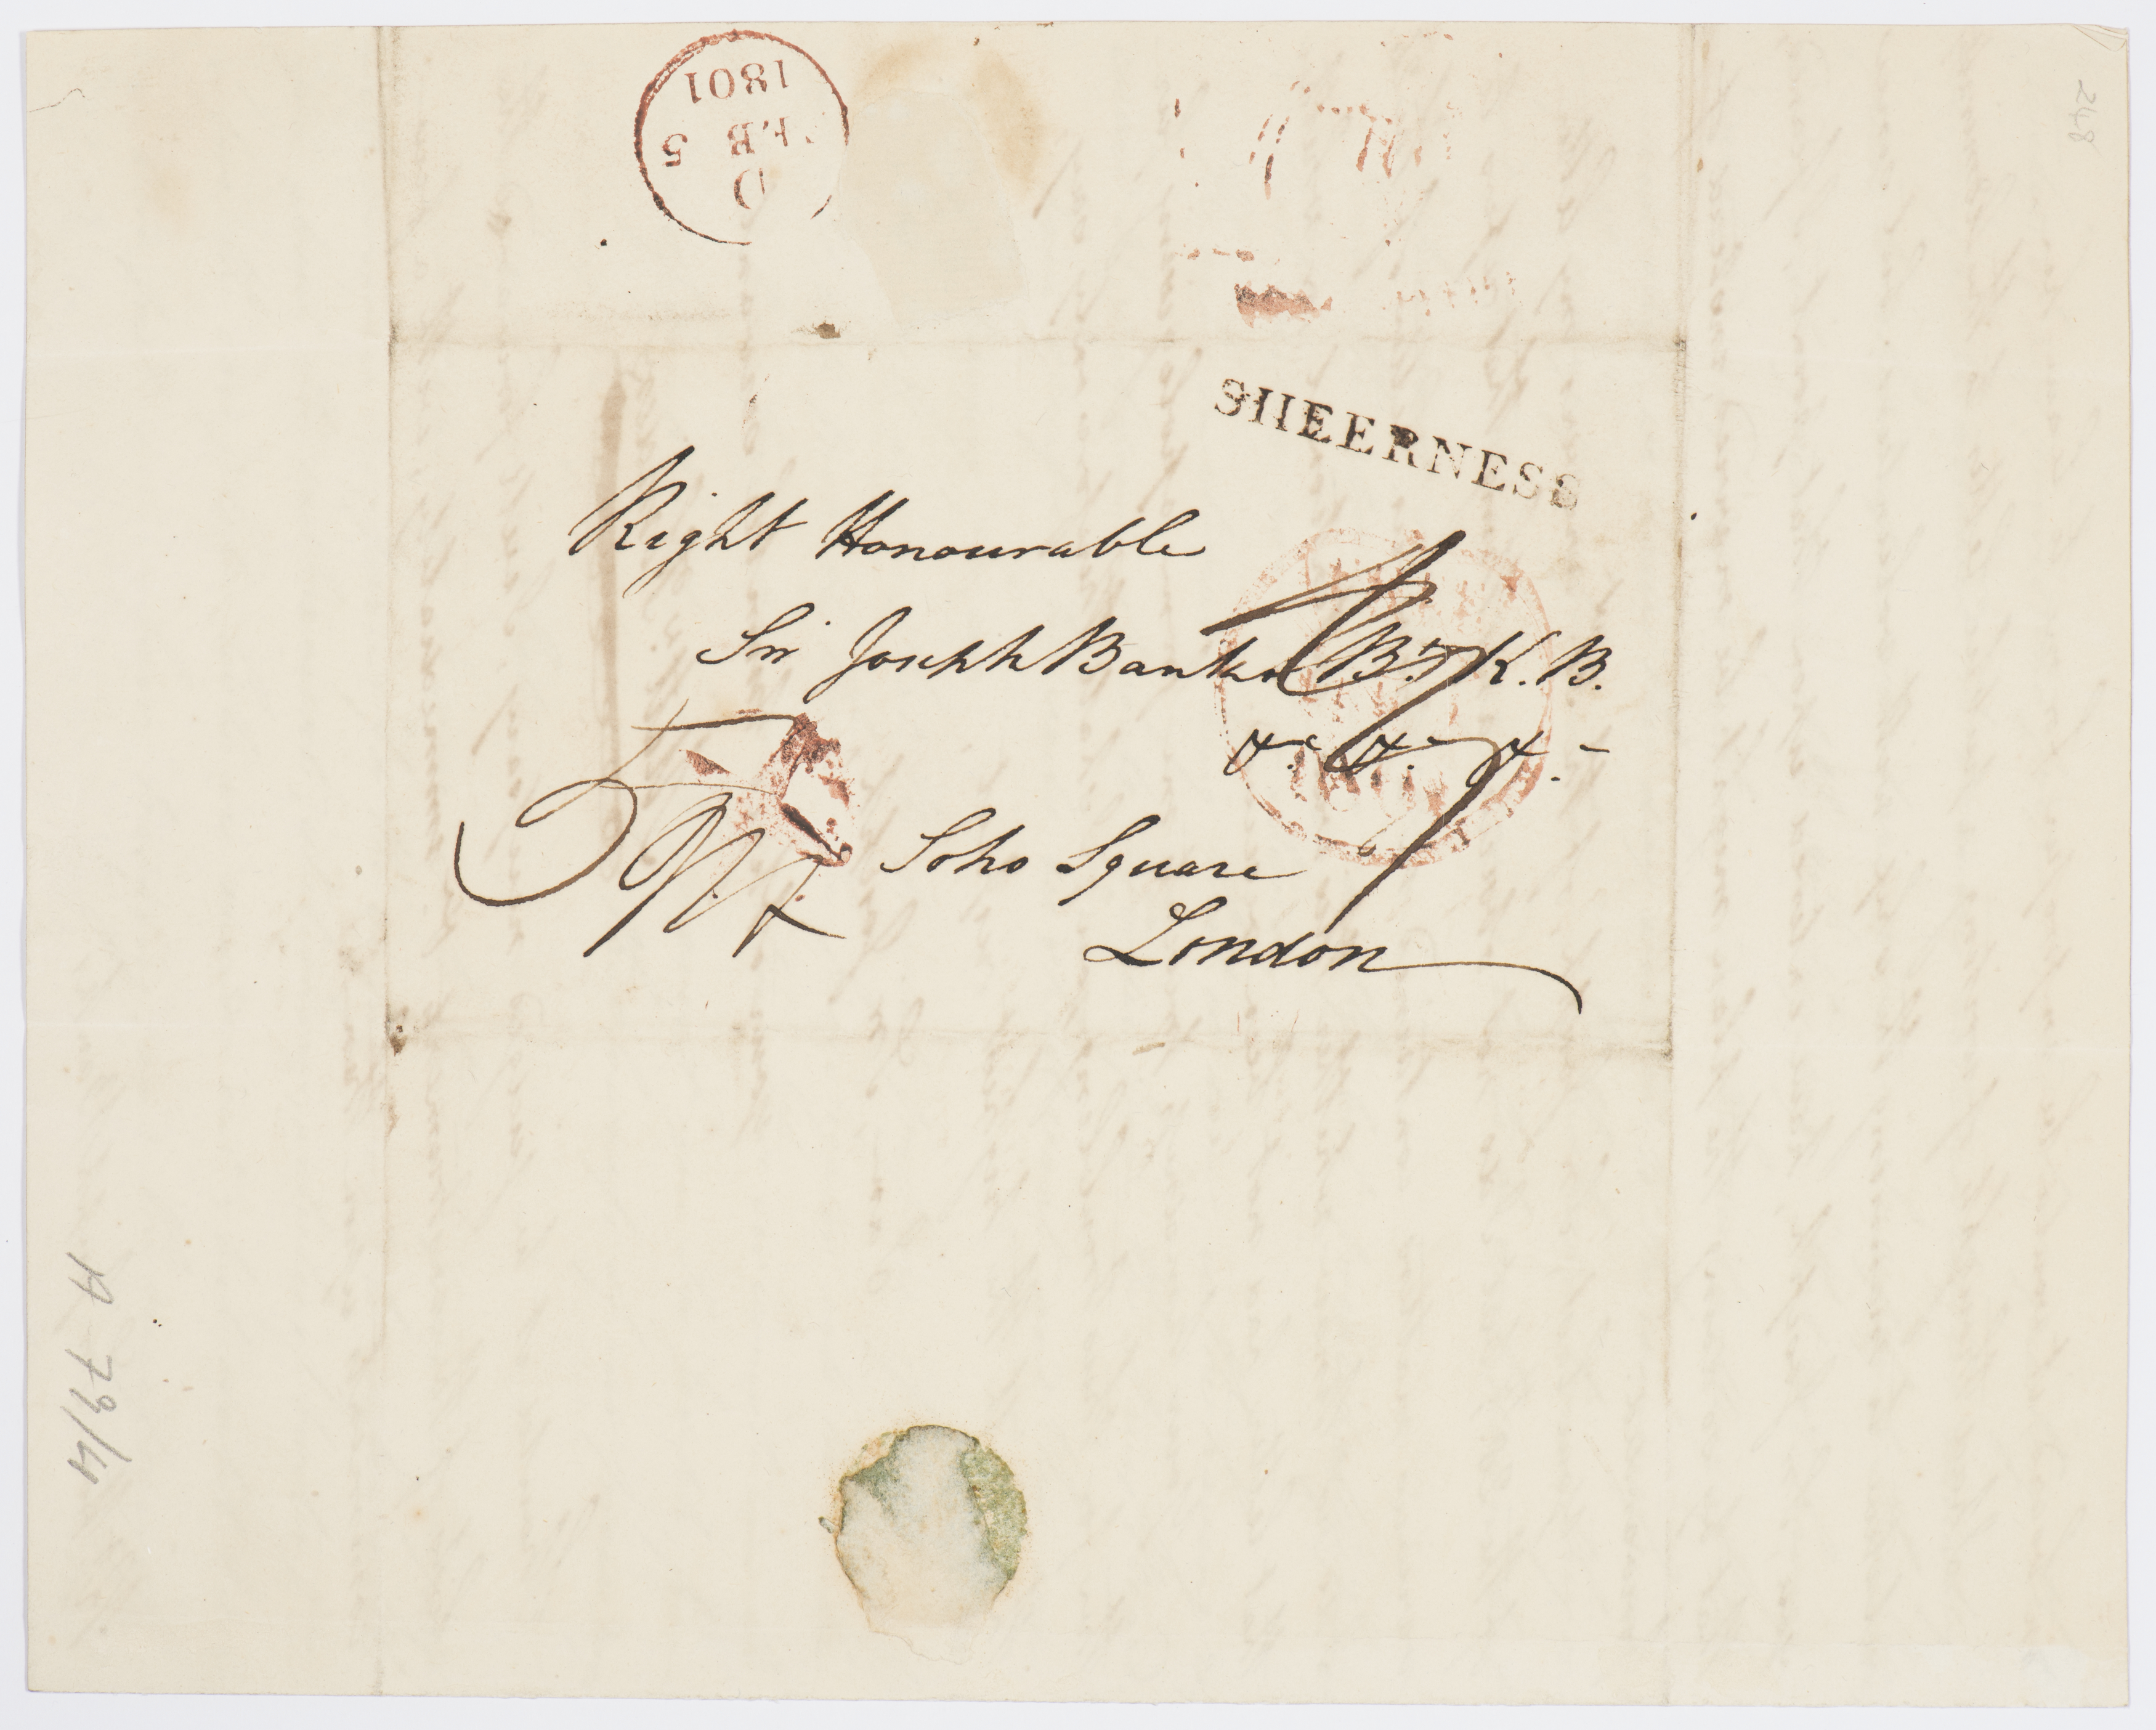 1801
FEB 5
D
248
SHEERNESS
Right Honourable
Sir Joseph Banks Bt. K.B.
&c. &c. &c.
Soho Square
London
A 79/4